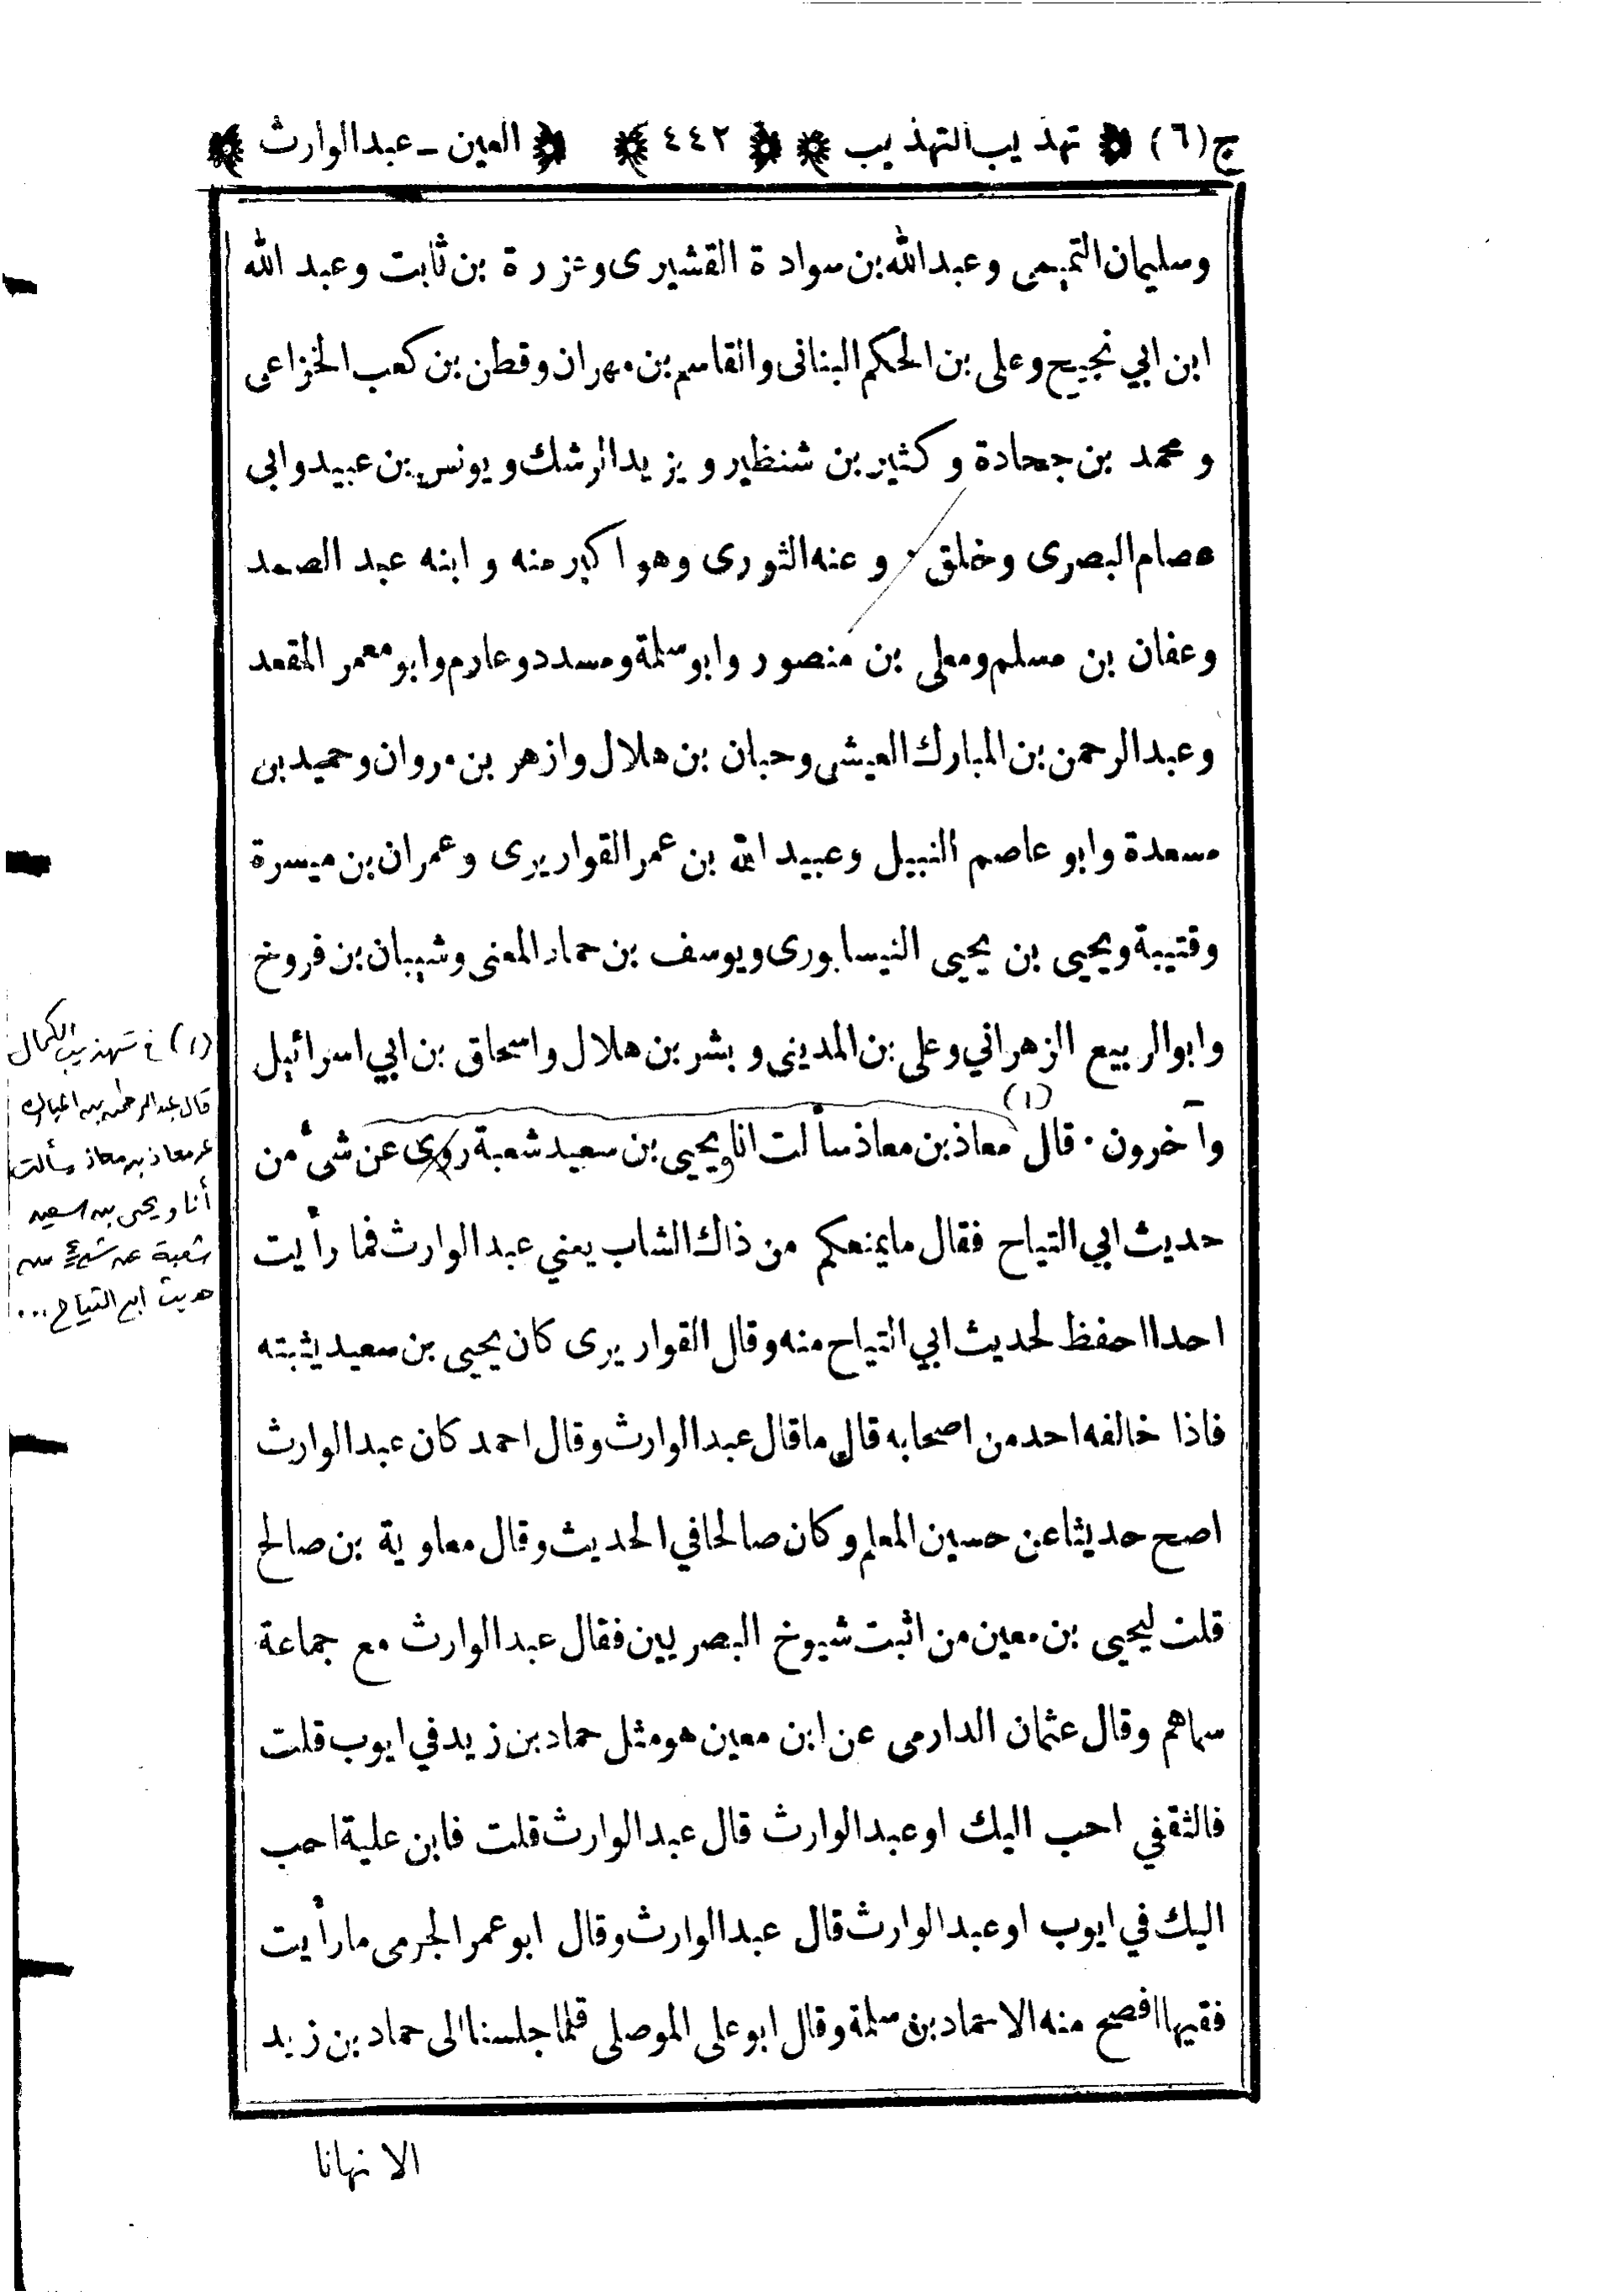 ج (٦) تهذيب التهذيب ٤٤٢ العين ـ عبد الوارث
وسليمان التميمي وعبدالله بن سوادة القشيرى وعزرة بن ثابت وعبد الله
ابن ابي نجيح وعلى بن الحكم البنانى والقاسم بن مهران وقطن بن كعب الخزاعى
و محمد بن جحادة و كثير بن شنظير ويزيد الرشك ويونس بن عبيد وابى
عصام البصرى وخلق ٠ وعنه الثورى وهو اكبر منه وابنه عبد الصمد
وعفان بن مسلم ومعلى بن منصور وابو سلمة ومسدد وعارم وابو معمر المقعد
وعبد الرحمن بن المبارك العيشى وحبان بن هلال وازهر بن مروان وحميد بن
مسعدة وابو عاصم النبيل وعبيد الله بن عمر القواريرى وعمران بن ميسرة
وقتيبة ويحيى بن يحيى النيسابورى ويوسف بن حماد المعنى وشيبان بن فروخ
وابو الربيع الزهراني وعلى بن المديني وبشر بن هلال واسحاق بن ابي اسرائيل
(١)
وآخرون ٠ قال معاذ بن معاذ سألت انا ويحيى بن سعيد شعبة روى عن شئ من
حديث ابي التياح فقال ما يمنعكم من ذاك الشاب يعني عبد الوارث فما رأيت
احدا احفظ لحديث ابي التياح منه وقال القواريرى كان يحيى بن سعيد يثبته
فاذا خالفه احد من اصحابه قال ما قال عبد الوارث وقال احمد كان عبد الوارث
اصح حديثا عن حسين المعلم وكان صالحا في الحديث وقال معاوية بن صالح
قلت ليحيى بن معين من اثبت شيوخ البصريين فقال عبد الوارث مع جماعة
سماهم وقال عثمان الدارمى عن ابن معين هو مثل حماد بن زيد في ايوب قلت
فالثقفي احب اليك او عبد الوارث قال عبد الوارث قلت فابن علية احب
اليك في ايوب او عبد الوارث قال عبد الوارث وقال ابو عمر الجرمى ما رأيت
فقيها افصح منه الا حماد بن سلمة وقال ابو على الموصلى قلما جلسنا الى حماد بن زيد
الا نهانا
(١) في تهذيب الكمال
قال عبد الرحمن بن المبارك
عن معاذ بن معاذ سألت
أنا ويحيى بن سعيد
شعبة عن شئ من
حديث ابي التياح ...